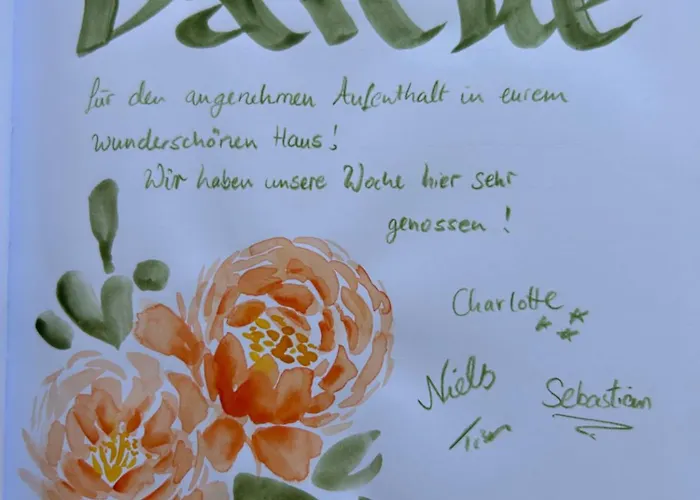 Danke
für den angenehmen Aufenthalt in eurem
wunderschönen Haus!
Wir haben unsere Woche hier sehr
genossen!
Charlotte
Niels
Sebastian